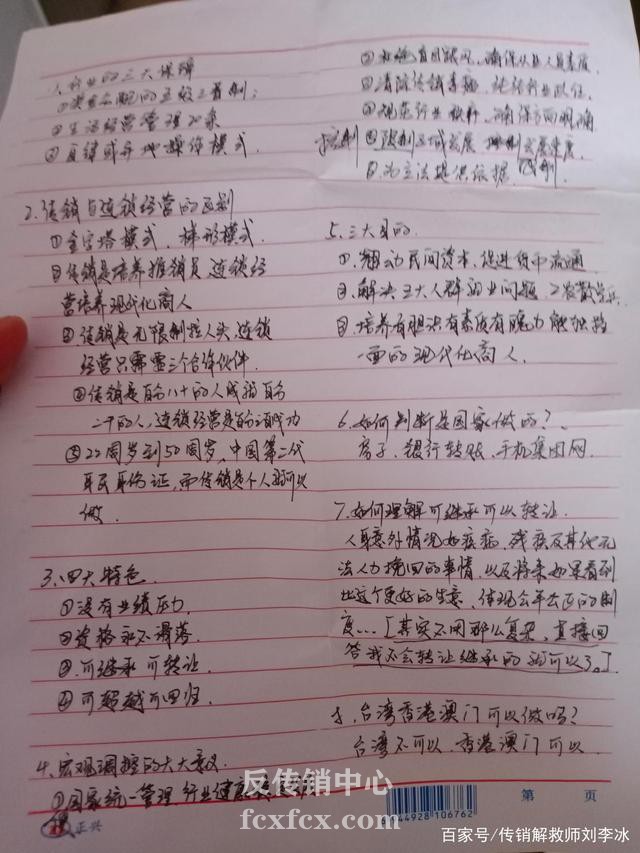 1.行业的三大保障
②生活经营管理
③异地操作模式.
2.传销与连锁经营的区别
①金字塔模式,梯形模式.
②传销是培养推销员,连锁经
营培养现代化商人
③传销是无限制拉人头,连锁
经营只需要三个合伴伙件.
④传销是百分八十的人成就百分
二十的人,连锁经营是百分百成功
⑤22周岁到50周岁,中国第二代
居民身份证,而传销是个人就可以
做.
3.四大特色
①没有业绩压力
②资格永不滑落
③可继承可转让
④可超越可回归.
4.宏观调控的六大意义.
①国家统一管理 行业健康
②杜绝盲目跟风,确保从业人员素质.
③清除传销毒瘤,
④规范行业秩序,确保方向明确
⑤限制区域发展 发展速度.
⑥为立法提供依据.
控制
5.三大目的.
①.翻动民间资本,促进货币流通
②.解决三大人群就业问题
③.培养有胆识有素质有魄力能独挡
一面的现代化商人.
6.如何判断是国家做的?
房子、银行转账、手机集团网.
7.如何理解可继承可以转让.
人身意外情况如疾病,残疾及其他无
法人力挽回的事情,以及将来如果看到
比这个更好的生意,体现公平公正的制
度...[其实不用那么复杂,直接回
答我不会转让继承的就可以了。]
8.台湾香港澳门可以做吗?
台湾不可以,香港澳门可以
正兴
6944928106762
第 页
反传销中心
fcxfcx.com
百家号/传销解救师刘李冰